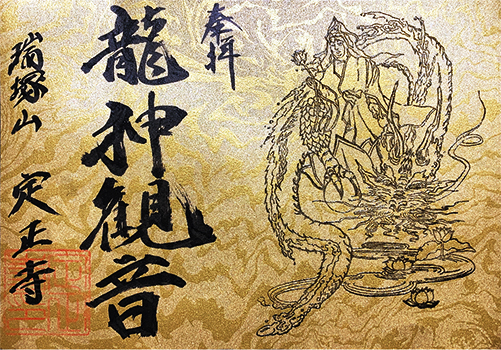 奉拝
龍神観音
瑞塚山 定正寺